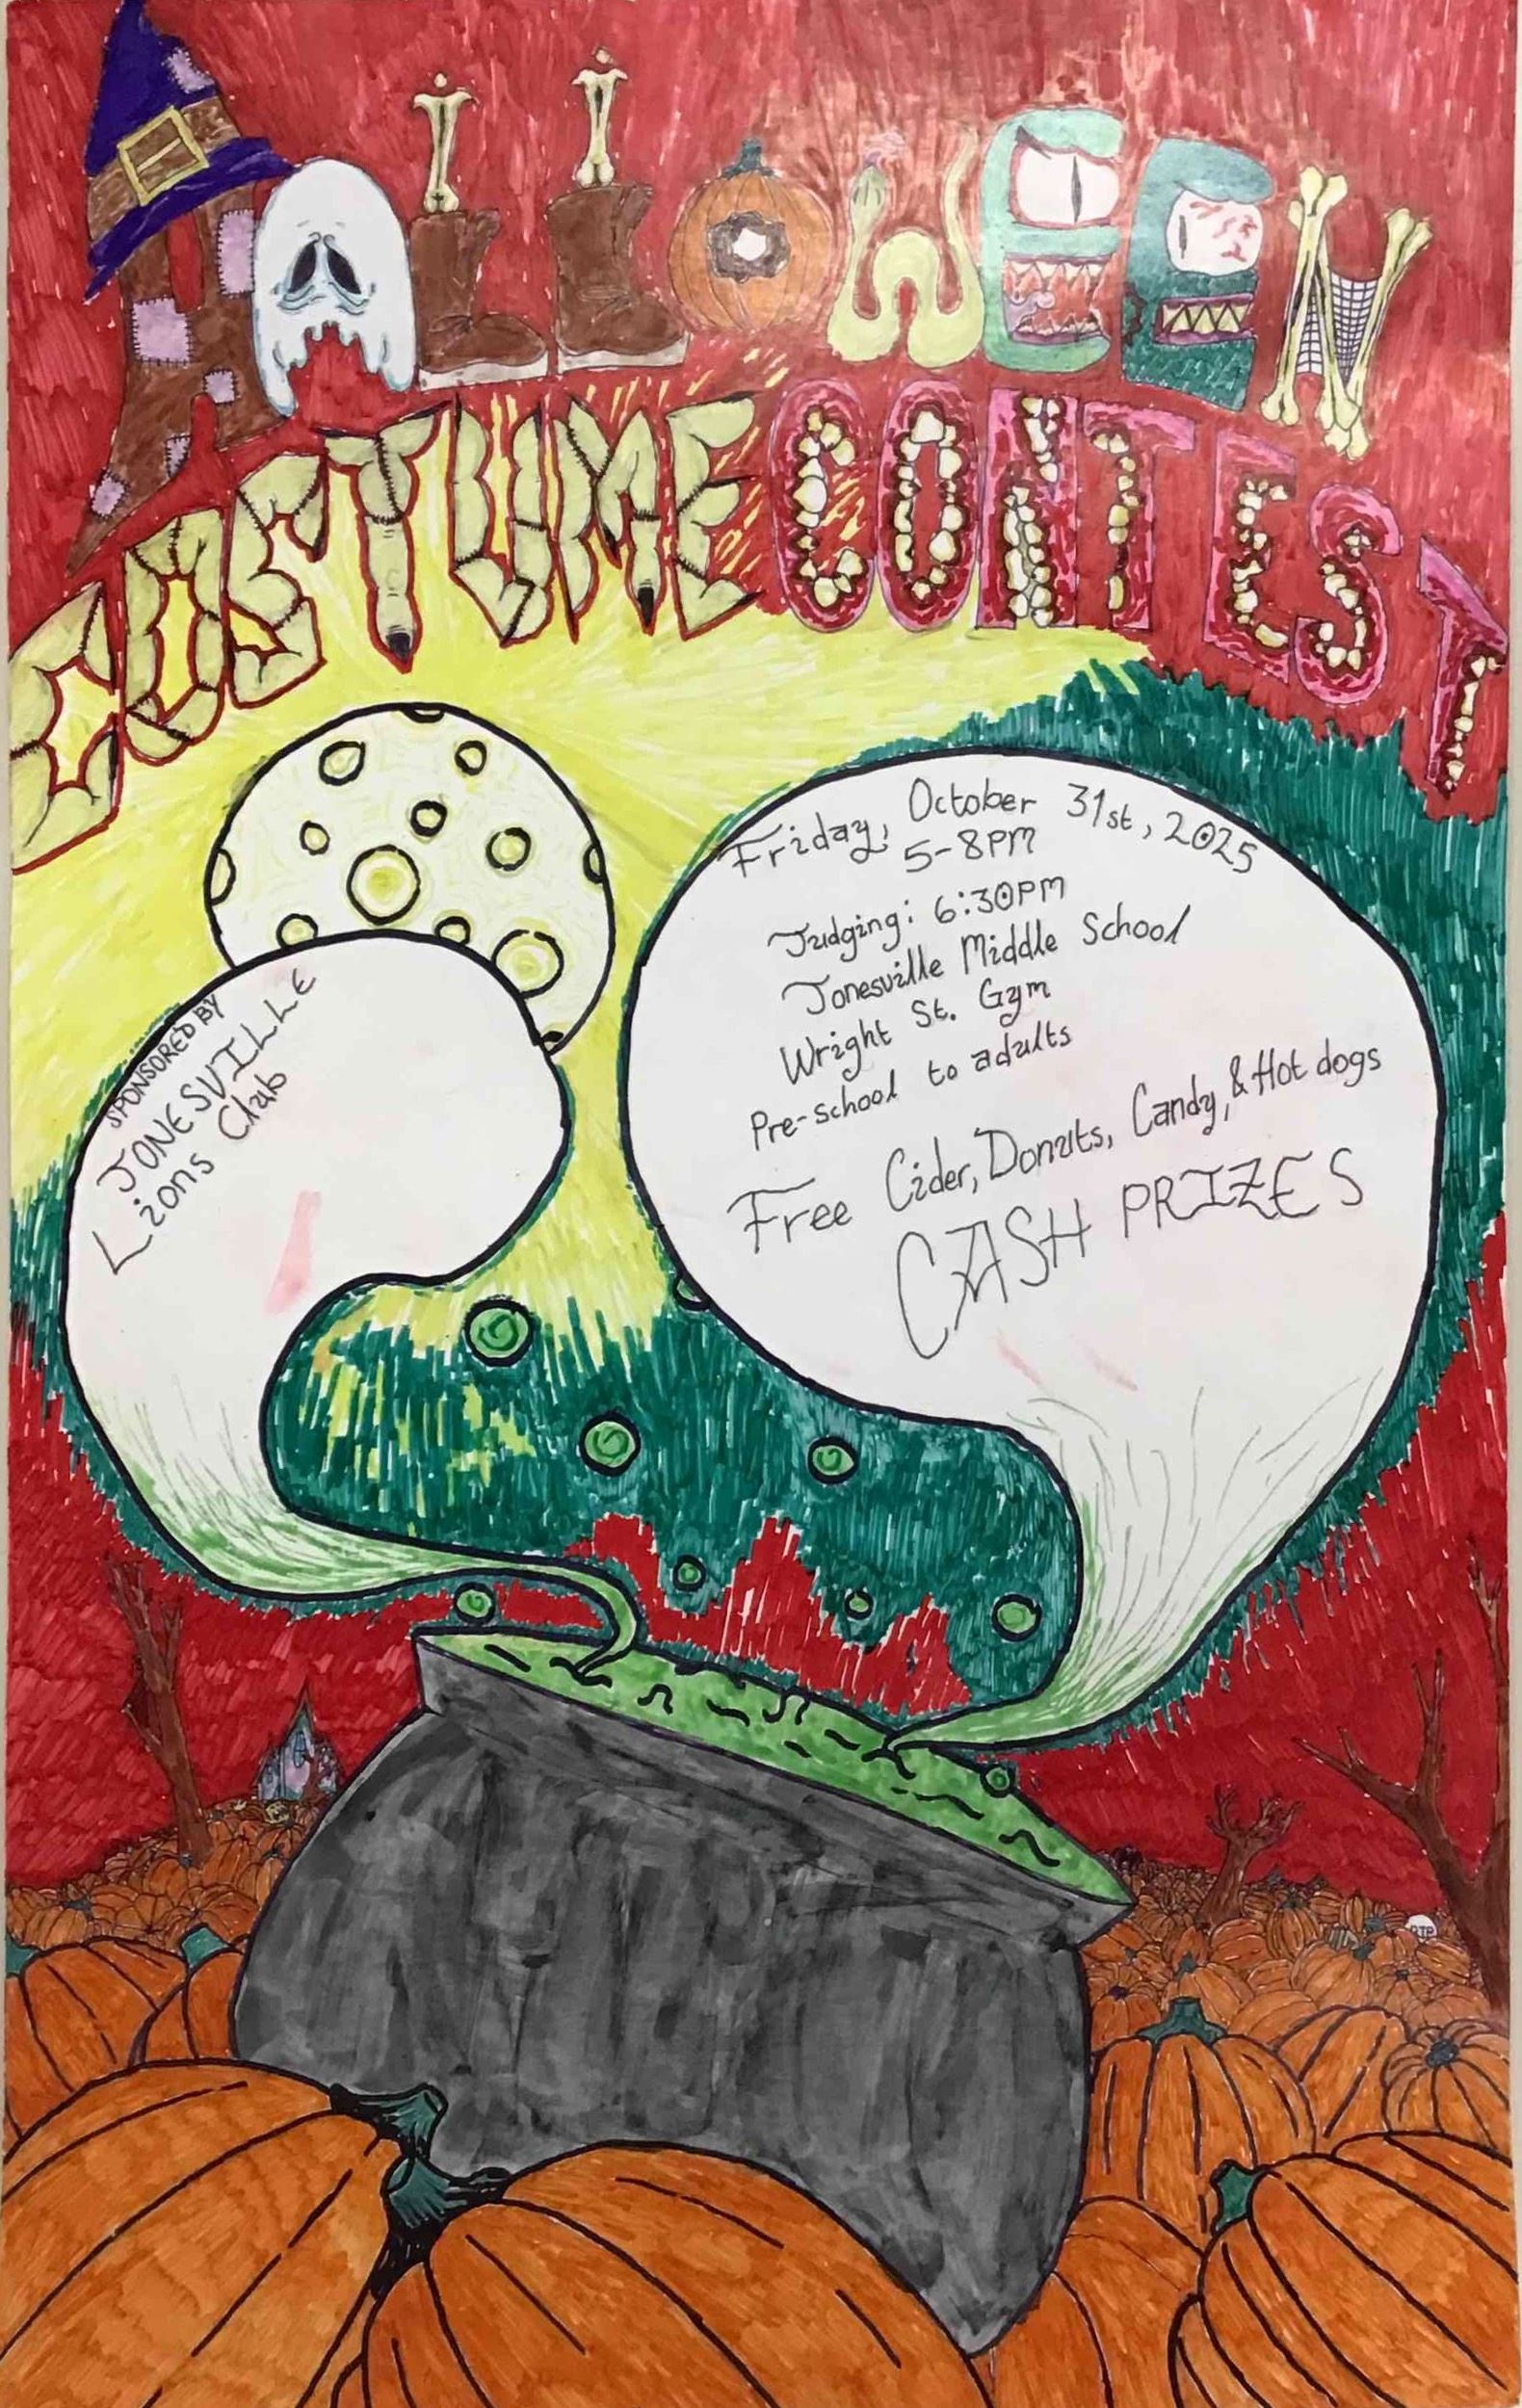 HALLOWEEN
COSTUME CONTEST
Friday, October 31st, 2025
5-8PM
Judging: 6:30PM
Jonesville Middle School
Wright St. Gym
Pre-school to adults
Free Cider, Donuts, Candy, & Hot dogs
CASH PRIZES
SPONSORED BY
JONESVILLE
Lions Club